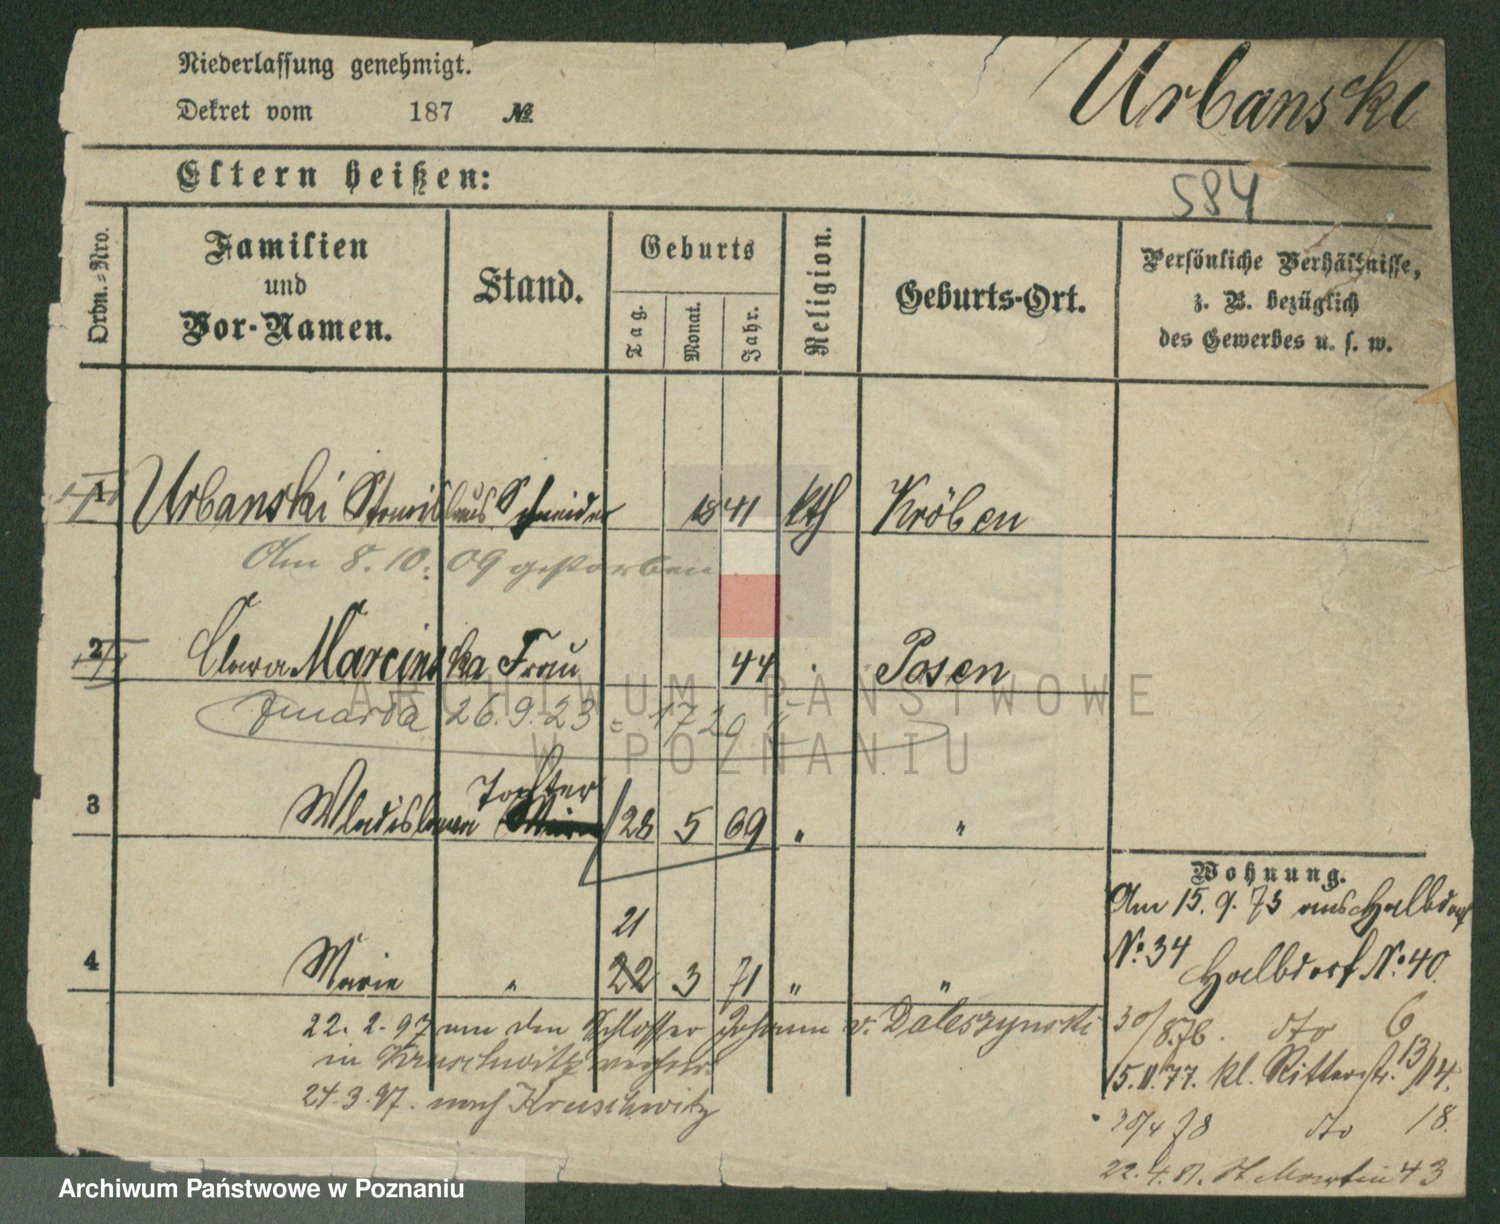 Niederlassung genehmigt.
Dekret vom 187 №
Urbanski
Eltern heißen:
584
Ordn.-Nro.
Familien
und
Vor-Namen.
Stand.
Geburts
Tag.
Monat.
Jahr.
Religion.
Geburts-Ort.
Persönliche Verhältnisse,
z. B. bezüglich
des Gewerbes u. s. w.
1 Urbanski Stanislaus Schneider 1841 kth Kröben
Am 8. 10. 09 gestorben
2 Clara Marcinska Frau 44 Posen
Zmarła 26.9.23 = 1729
ARCHIWUM PAŃSTWOWE
W POZNANIU
Tochter
3 Wladislawa 28 5 69 " "
Wohnung.
Am 15. 9. 73 aus Halbdorf
No. 34 Halbdorf No. 40.
21
4 Marie " 22 3 71 " "
22. 2. 97 an den Schlosser Johann v. Daleszynski
in Kruschwitz
24. 3. 97. nach Kruschwitz
30/8.76. dto 6
15.11.77. kl. Ritterstr. 13/14.
30/4 78 dto 18.
22. 4. 81. St Martin 43
Archiwum Państwowe w Poznaniu